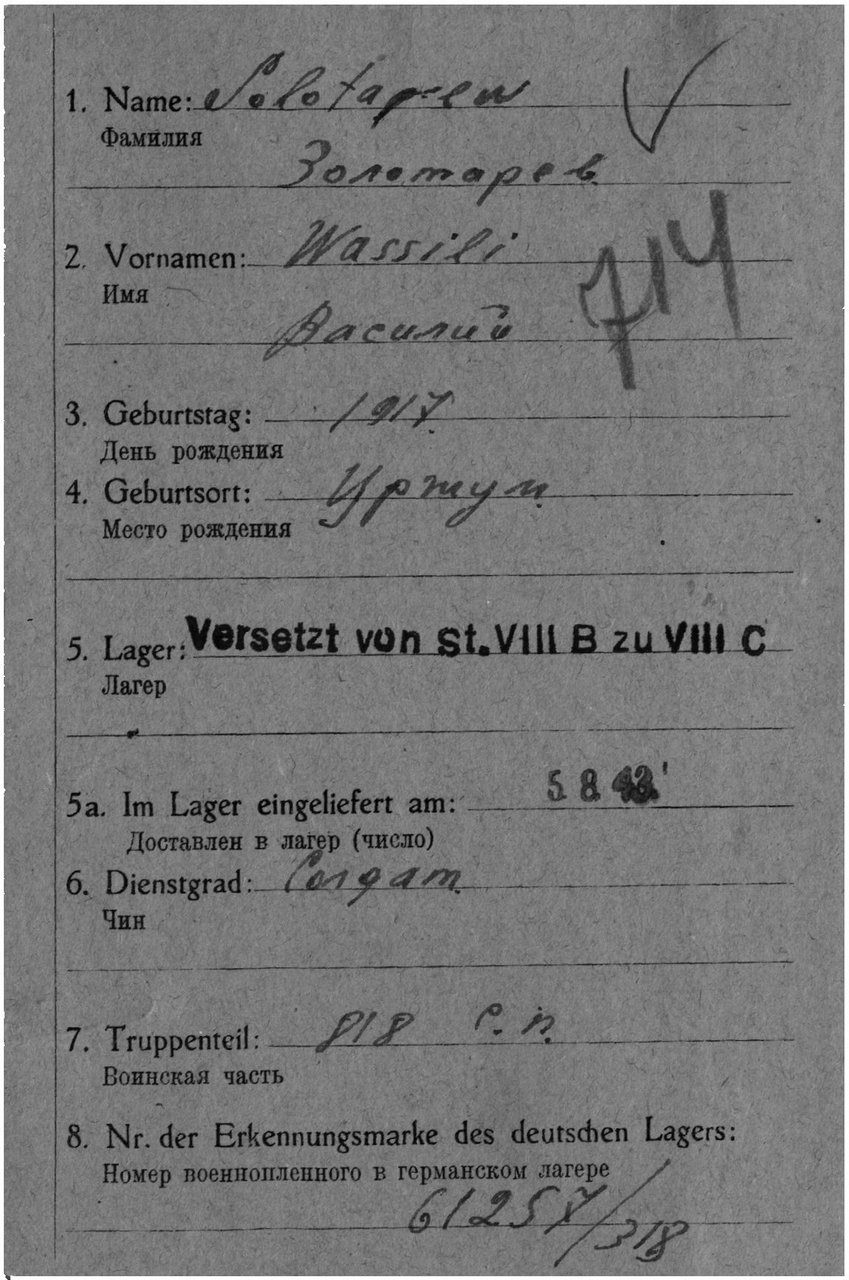 1. Name: Solotarew
Фамилия
Золотарев
714
2. Vornamen: Wassili
Имя
Василий
3. Geburtstag: 1917
День рождения
4. Geburtsort: Уржум
Место рождения
5. Lager: Versetzt von St. VIII B zu VIII C
Лагер
5a. Im Lager eingeliefert am: 5. 8.
Доставлен в лагер (число)
6. Dienstgrad: Солдат
Чин
7. Truppenteil: 818 с. п.
Воинская часть
8. Nr. der Erkennungsmarke des deutschen Lagers:
Номер военнопленного в германском лагере
61257/318